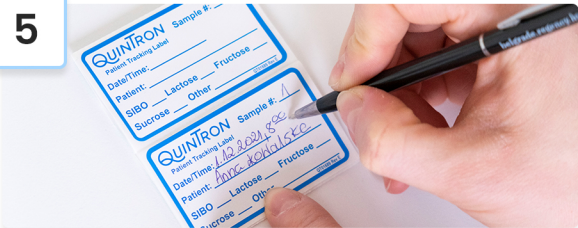 5
QUINTRON
Sample #:
Patient Tracking Label
Date/Time:
Patient:
SIBO Lactose Fructose
Sucrose Other
QUINTRON
Sample #: 1
Patient Tracking Label
Date/Time: 1.12.2021, 8:00
Patient: Anna Kowalska
SIBO Lactose Fructose
Sucrose Other
belgrade regency